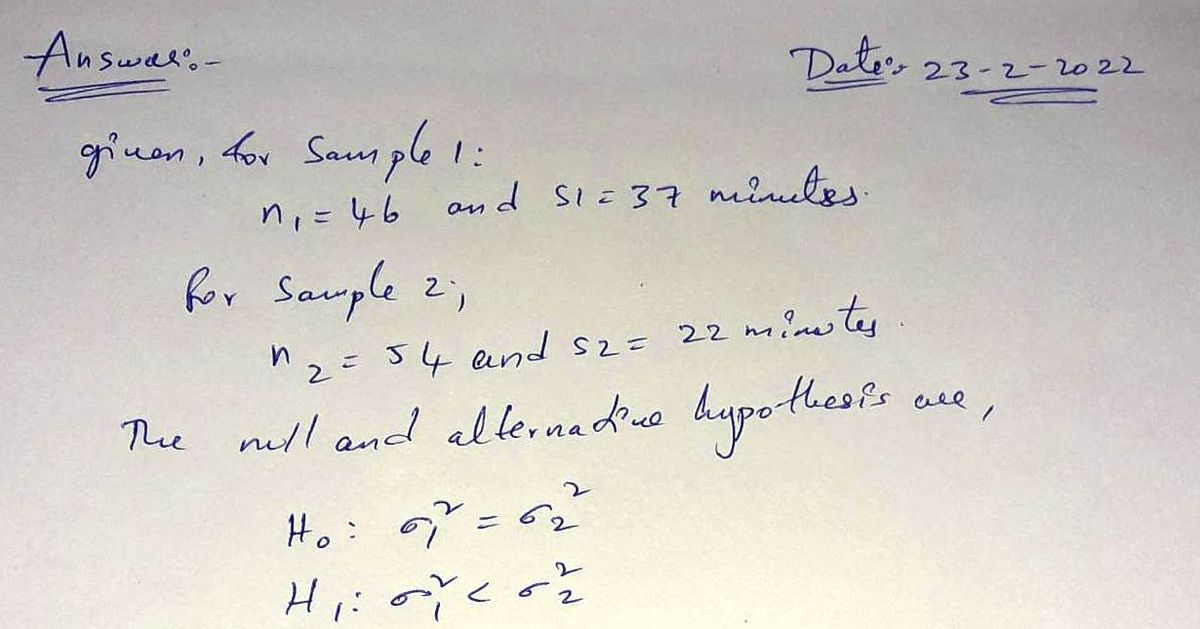 Answer:-
Date:- 23-2-2022
given, for Sample 1:
n₁ = 46 and S1 = 37 minutes.
for Sample 2;
n₂ = 54 and S2 = 22 minutes.
The null and alternative hypothesis are,
H₀: σ₁² = σ₂²
H₁: σ₁² < σ₂²